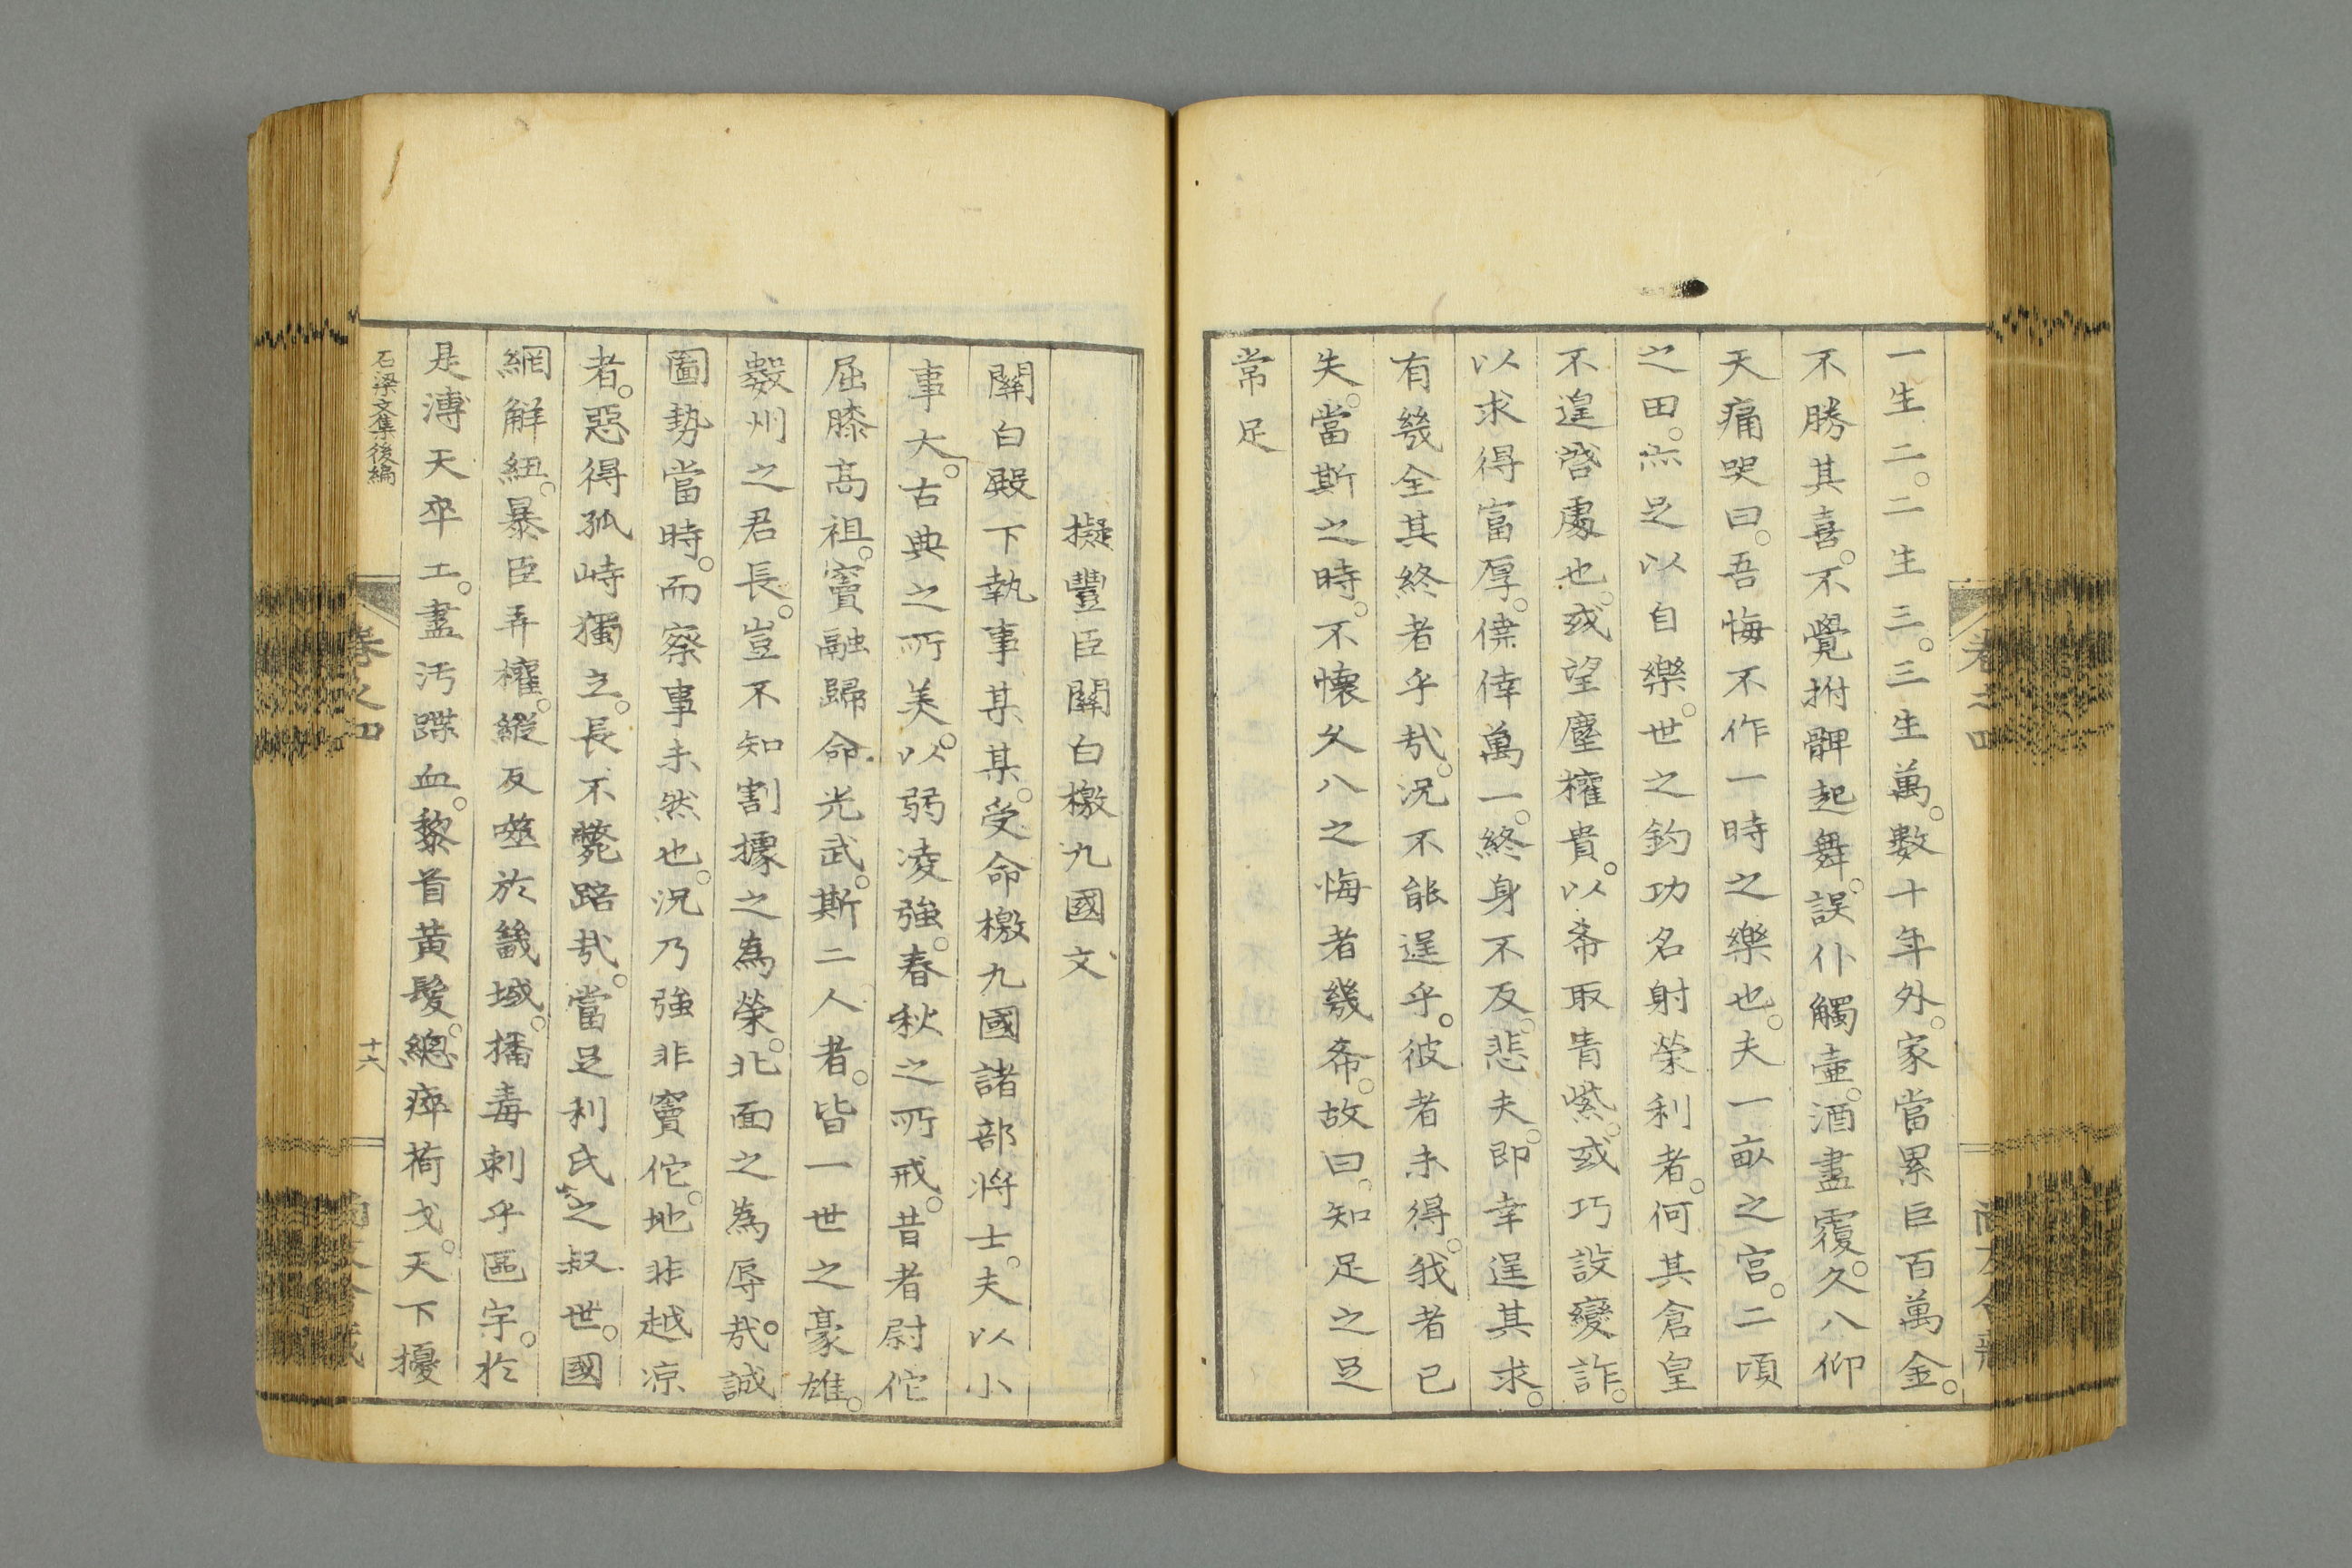 一生二。二生三。三生萬。數十年外。家當累巨百萬金。
不勝其喜。不覺拊髀起舞。誤仆觸壷。酒盡覆。久八仰
天痛哭曰。吾悔不作一時之樂也。夫一畝之宮。二頃
之田。亦足以自樂。世之釣功名射榮利者。何其倉皇
不遑啓處也。或望塵權貴。以希取青紫。或巧設變詐。
以求得富厚。僥倖萬一。終身不反。悲夫。即幸逞其求。
有幾全其終者乎哉。況不能逞乎。彼者未得。我者已
失。當斯之時。不懷久八之悔者幾希。故曰。知足之足
常足
卷之四
擬豐臣關白檄九國文
關白殿下執事某某。受命檄九國諸部將士。夫以小
事大。古典之所美。以弱凌強。春秋之所戒。昔者尉佗
屈膝高祖。竇融歸命光武。斯二人者。皆一世之豪雄。
數州之君長。豈不知割據之為榮。北面之為辱哉。誠
圖勢當時。而察事未然也。況乃強非竇佗。地非越凉
者。惡得孤峙獨立。長不斃踣哉。當足利氏之叔世。國
網解紐。暴臣弄權。縱反噬於畿域。播毒刺乎區宇。於
是溥天卒土。盡汚蹀血。黎首黃髮。總瘁荷戈。天下擾
石梁文集後編
卷之四
十六